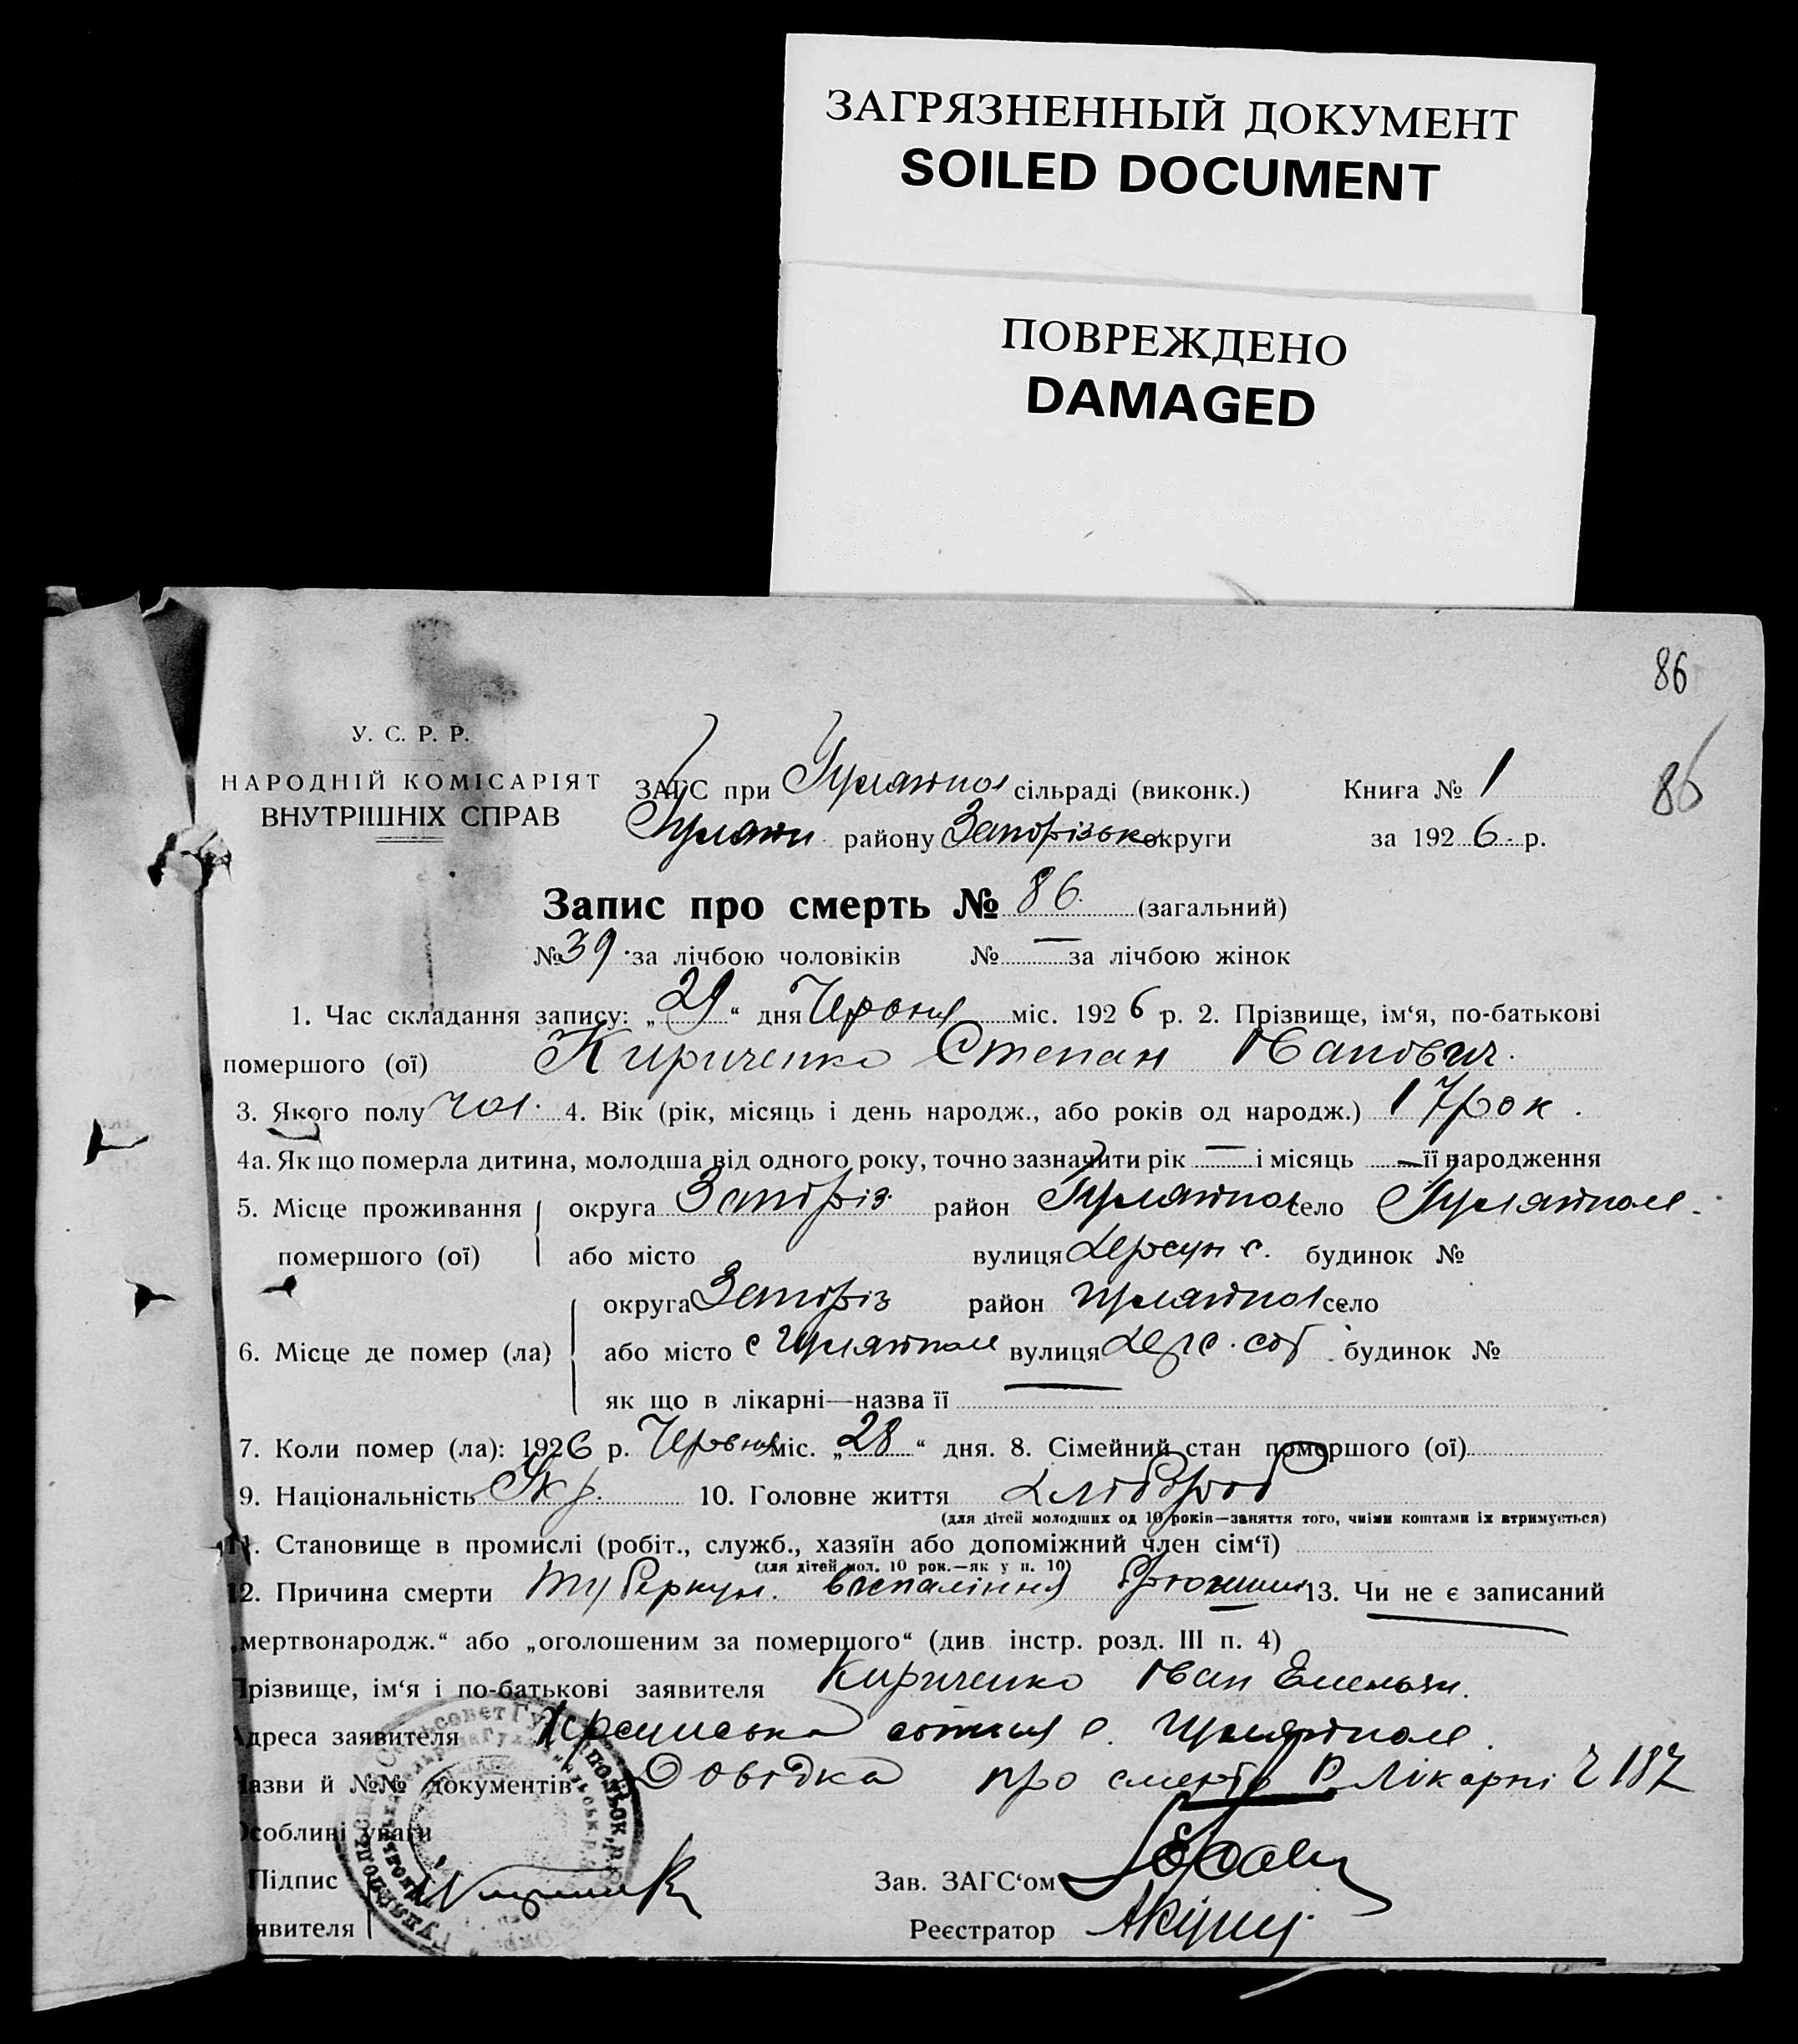 ЗАГРЯЗНЕННЫЙ ДОКУМЕНТ
SOILED DOCUMENT
ПОВРЕЖДЕНО
DAMAGED
86
86
У. С. Р. Р.
НАРОДНІЙ КОМІСАРІЯТ
ВНУТРІШНІХ СПРАВ
ЗАГС при Гуляйпол сільраді (виконк.) Книга № 1
Гуляйп. району Запорізьк округи за 1926 р.
Запис про смерть № 86. (загальний)
№ 39 за лічбою чоловіків № — за лічбою жінок
1. Час складання запису: „29“ дня Червня міс. 1926 р. 2. Прізвище, ім‘я, по-батькові
помершого (ої) Кириченко Степан Іванович.
3. Якого полу чол. 4. Вік (рік, місяць і день народж., або років од народж.) 17 рок.
4а. Як що померла дитина, молодша від одного року, точно зазначити рік — і місяць — її народження
5. Місце проживання округа Запоріз. район Гуляйпол село Гуляйполе.
помершого (ої) або місто вулиця будинок №
округа Запоріз район Гуляйпол село
6. Місце де помер (ла) або місто с Гуляйполе вулиця будинок №
як що в лікарні—назва її —
7. Коли помер (ла): 1926 р. Червня міс. „28“ дня. 8. Сімейний стан помершого (ої)
9. Національність Укр. 10. Головне життя Хлібороб
(для дітей молодших од 10 років—заняття того, чиїми коштами їх втримується)
11. Становище в промислі (робіт., служб., хазяїн або допоміжний член сім‘ї)
(для дітей мол. 10 рок.—як у п. 10)
12. Причина смерти Туберкул. воспаління брюшини 13. Чи не є записаний
„мертвонародж.“ або „оголошеним за помершого“ (див інстр. розд. III п. 4)
Прізвище, ім‘я і по-батькові заявителя Кириченко Іван Емельян.
Адреса заявителя Херсунська сотня с. Гуляйполе.
Назви й №№ документів Довідка про смерть Лікарні 187
Особливі уваги
Підпис Зав. ЗАГС‘ом
явителя Реєстратор